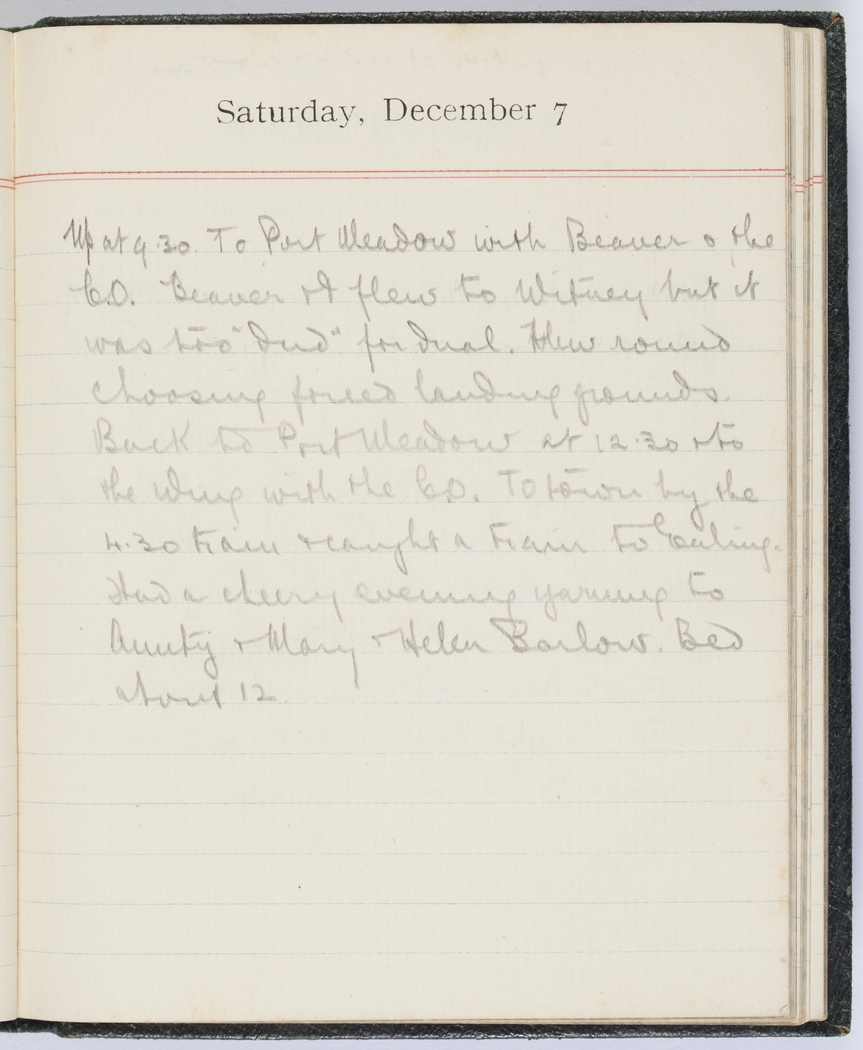 Saturday, December 7
Up at 9.30. To Port Meadow with Beaver & the
C.O. Beaver & I flew to Witney but it
was too "dud" for dual. Flew round
choosing forced landing grounds.
Back to Port Meadow at 12.30 & to
the Wing with the C.O. To town by the
4.30 train & caught a train to Ealing.
Had a cheery evening yarning to
Aunty & Mary & Helen Barlow. Bed
about 12.